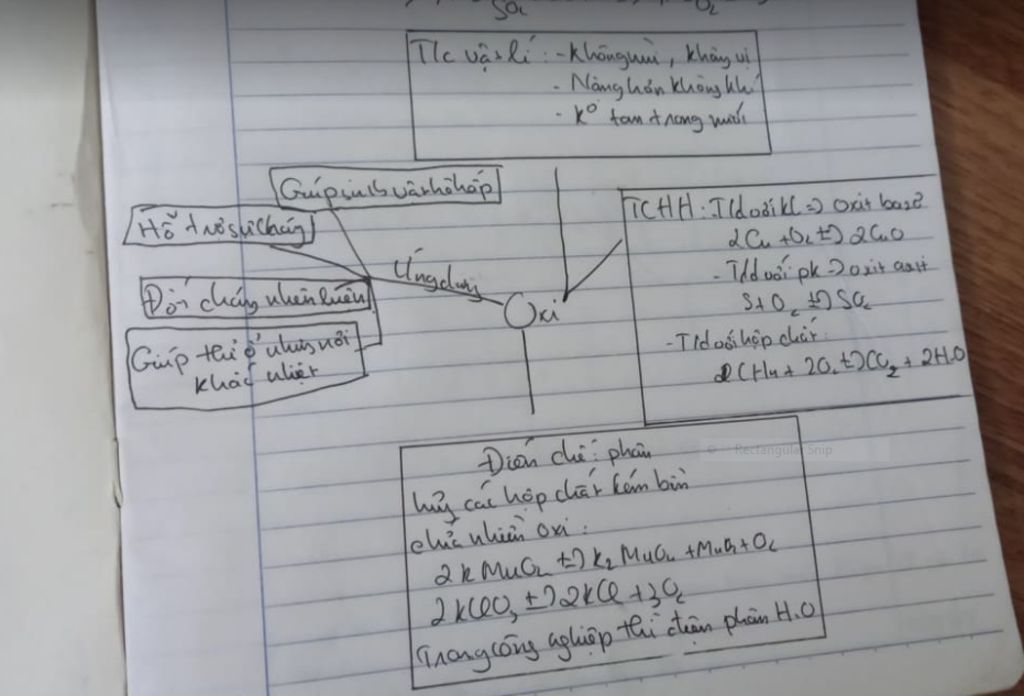 SO₂ O₂
T/c vật lí : - Không mùi, không vị
- Nặng hơn không khí
- k° tan trong nước
Giúp sinh vật hô hấp
Hỗ trợ sự cháy
Đốt cháy nhiên liệu
Giúp thở ở những nơi
khắc nhiệt
Ứng dụng
Oxi
TCHH : T/d với kl => oxit bazơ
2Cu + O₂ t=> 2CuO
- T/d với pk => oxit axit
S + O₂ t=> SO₂
- T/d với hợp chất :
CH₄ + 2O₂ t=> CO₂ + 2H₂O
Rectangular Snip
Điều chế : phân
hủy các hợp chất kém bền
chứa nhiều oxi :
2KMnO₄ t=> K₂MnO₄ + MnO₂ + O₂
2KClO₃ t=> 2KCl + 3O₂
Trong công nghiệp thì điện phân H₂O